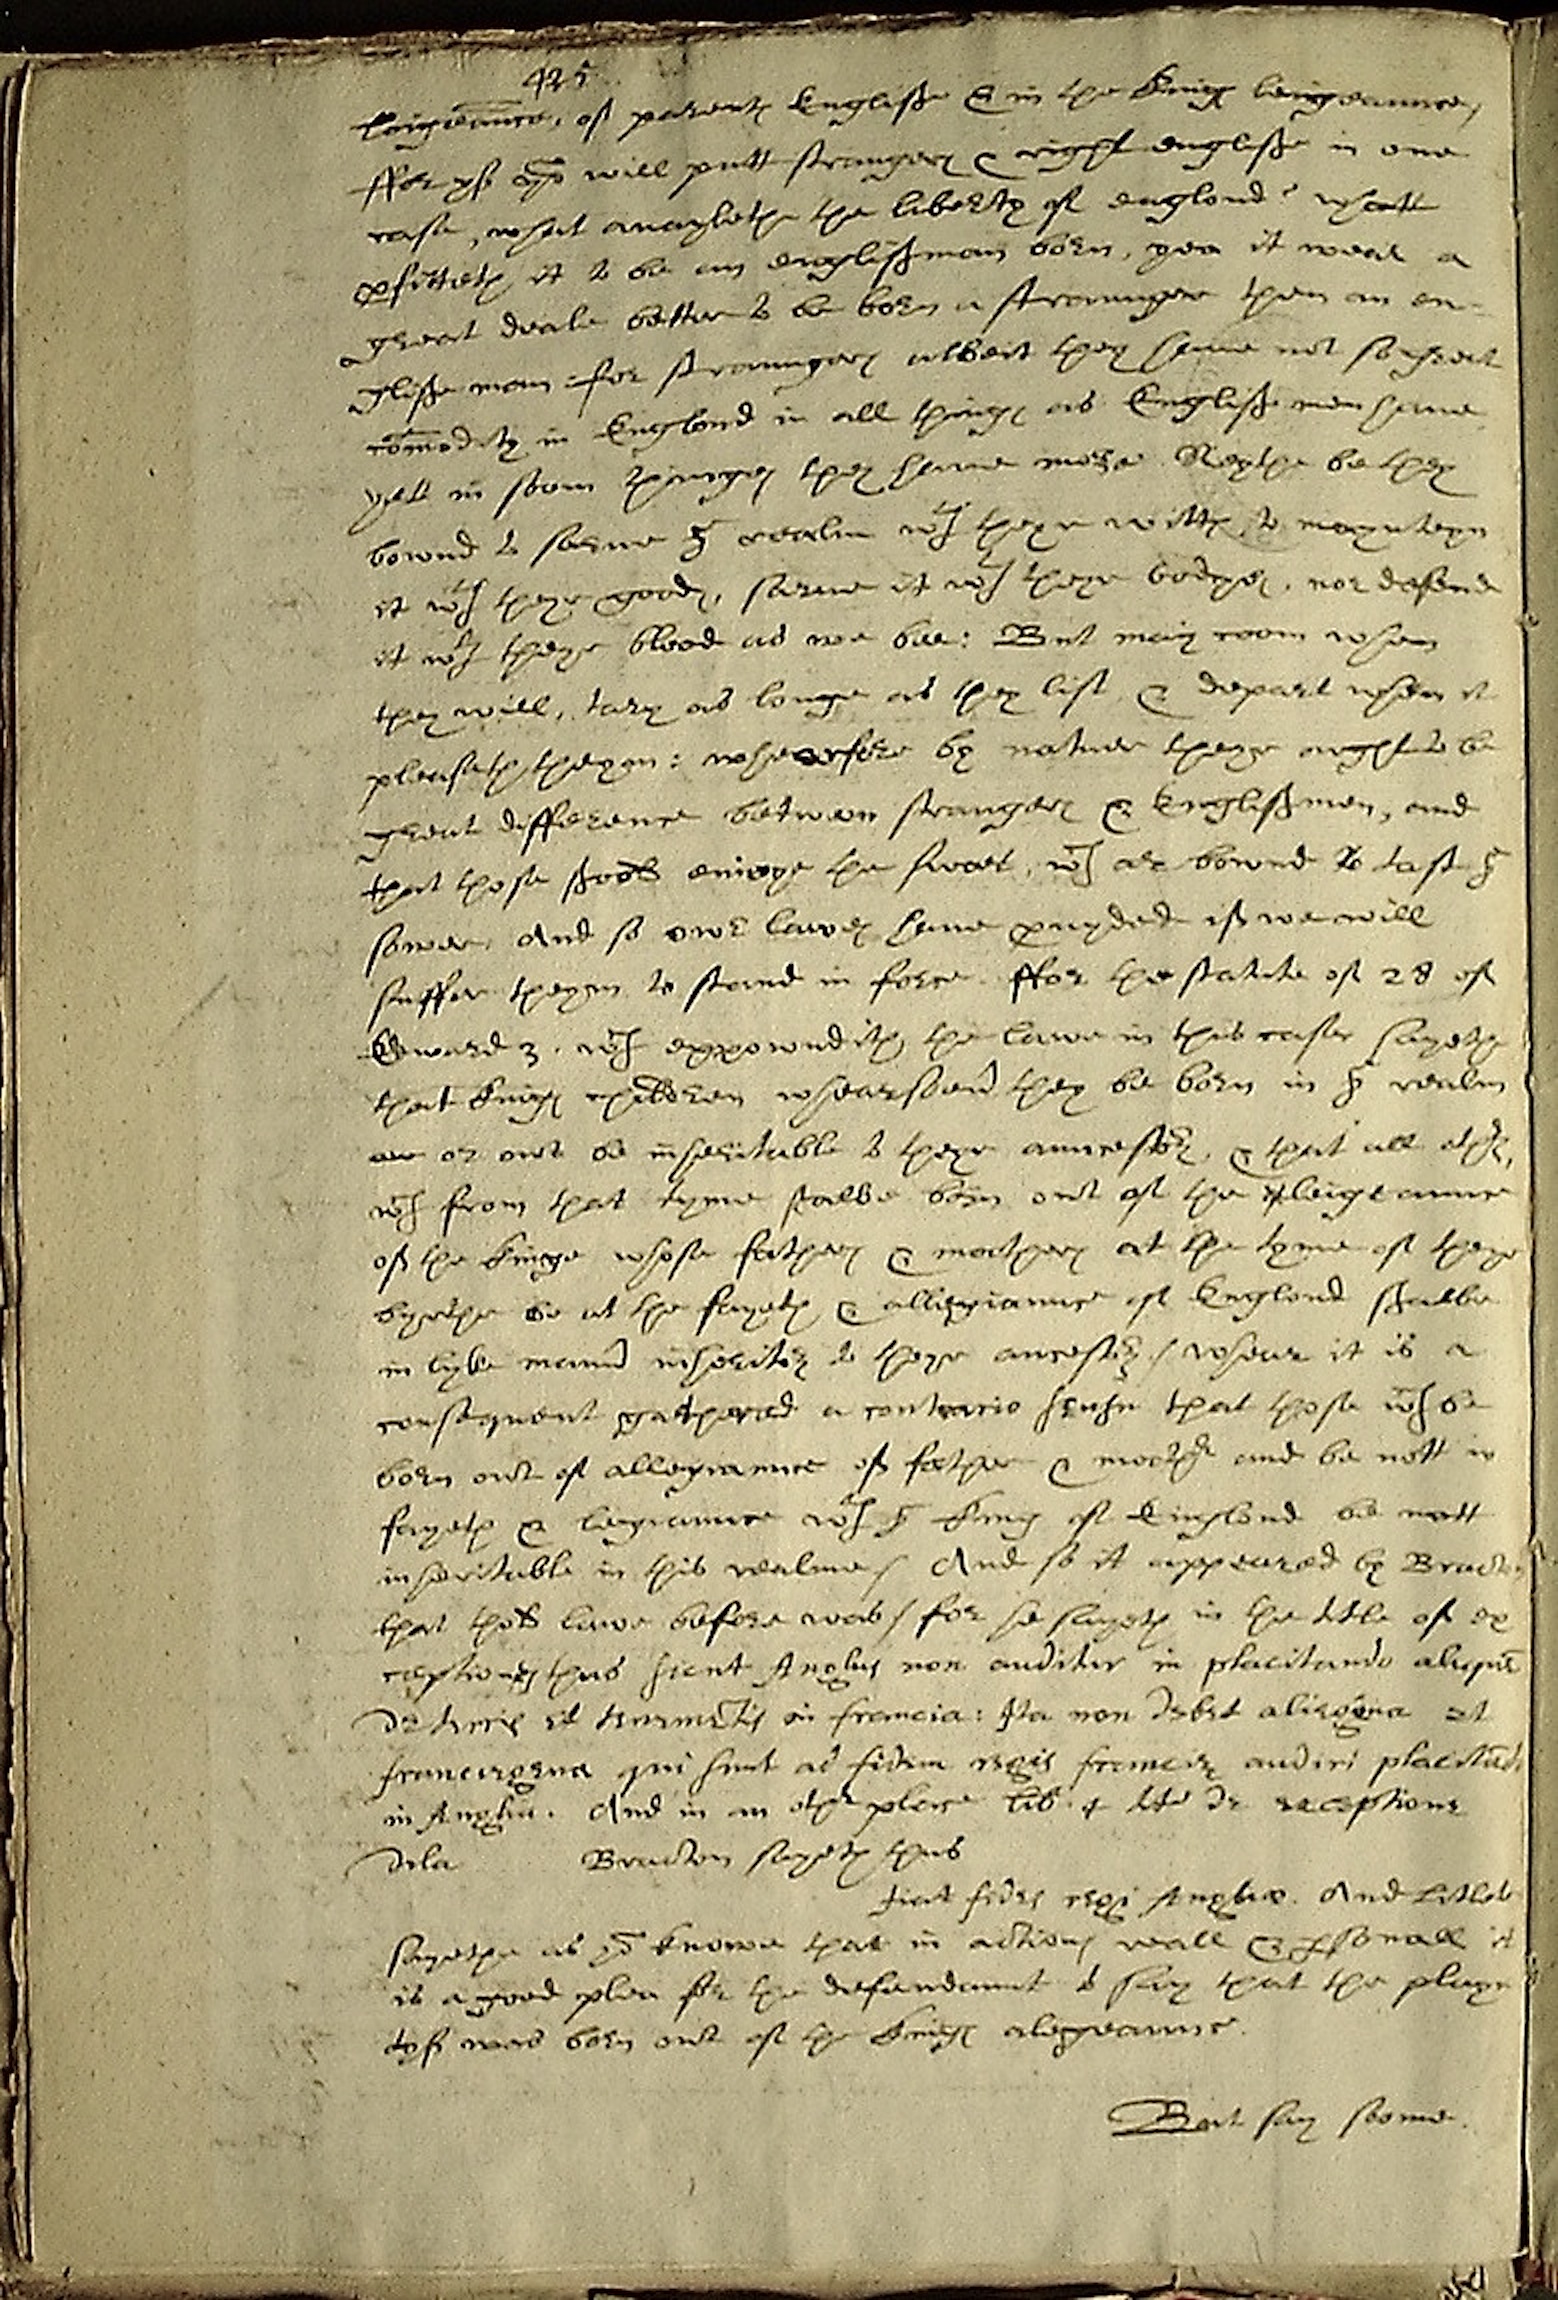 425
leigeaunce, of parents Englisshe & in the kings leigeaunce,
ffor yf you will putt strangers & right englisshe in one
case, what avayleth the liberty of englond? whatt
profitteth it to be an englisshman born, yea it wear a
great deale better to be born a straunger then an en-
glisshe man: for straungers albeit they have not so great
comodity in Englond in all things as Englisshe men have
yett in soom thinges they have more. Neyther be they
bownd to serve ye realm wth theyr witts, to mayntayn
it wth theyr goods, serve it wth theyr bodyes, nor defend
it wth theyr blood as we bee: But may coom when
they will, tary as longe as they list, & depart when it
pleaseth theym: whearfore by nature theyr ought to be
great difference between strangers & Englisshmen, and
that those shold enioye the sweet, wch are bownd to tast ye
sower. And so owr lawes have provyded if we will
suffer theym to stand in force. ffor the statute of 25 of
Edward 3. wch expowndith the lawe in this case sayeth
that kings children whearsoever they be born in ye realm
or out be inheritable to theyr auncestors, & that all others,
wch from that tyme shalbe born out of the leigeaunce
of the kinge whose fathers & mothers at the tyme of theyr
byrthe be at the fayeth & allegiaunce of Englond shalbe
in lyke maner inheritors to theyr ancestors / whear it is a
consequent gathered a contrario sensu that those wch be
born out of allegiaunce of father & mother and be nott in
fayeth & legiaunce wth ye king of Englond be nott
inheritable in this realme / And so it appeared by Bracton
that the lawe before was / for he sayeth in the title of ex
ceptions thus sicut Anglus non auditur in placitando aliquem
de terris et tenementis in francia: Ita non debet aliegena et
francigena qui sunt ad fidem regis franciae audiri placitando
in Anglia. And in an other place lib. 4 tito de exceptione
dela Bracton sayeth thus
fiat fides regi Angliae. And Litleton
sayethe as you knowe that in actions reall & personall it
is a good plea for the defendaunt to say that the playn
tyf was born out of the kings alegeaunce.
But say soome.